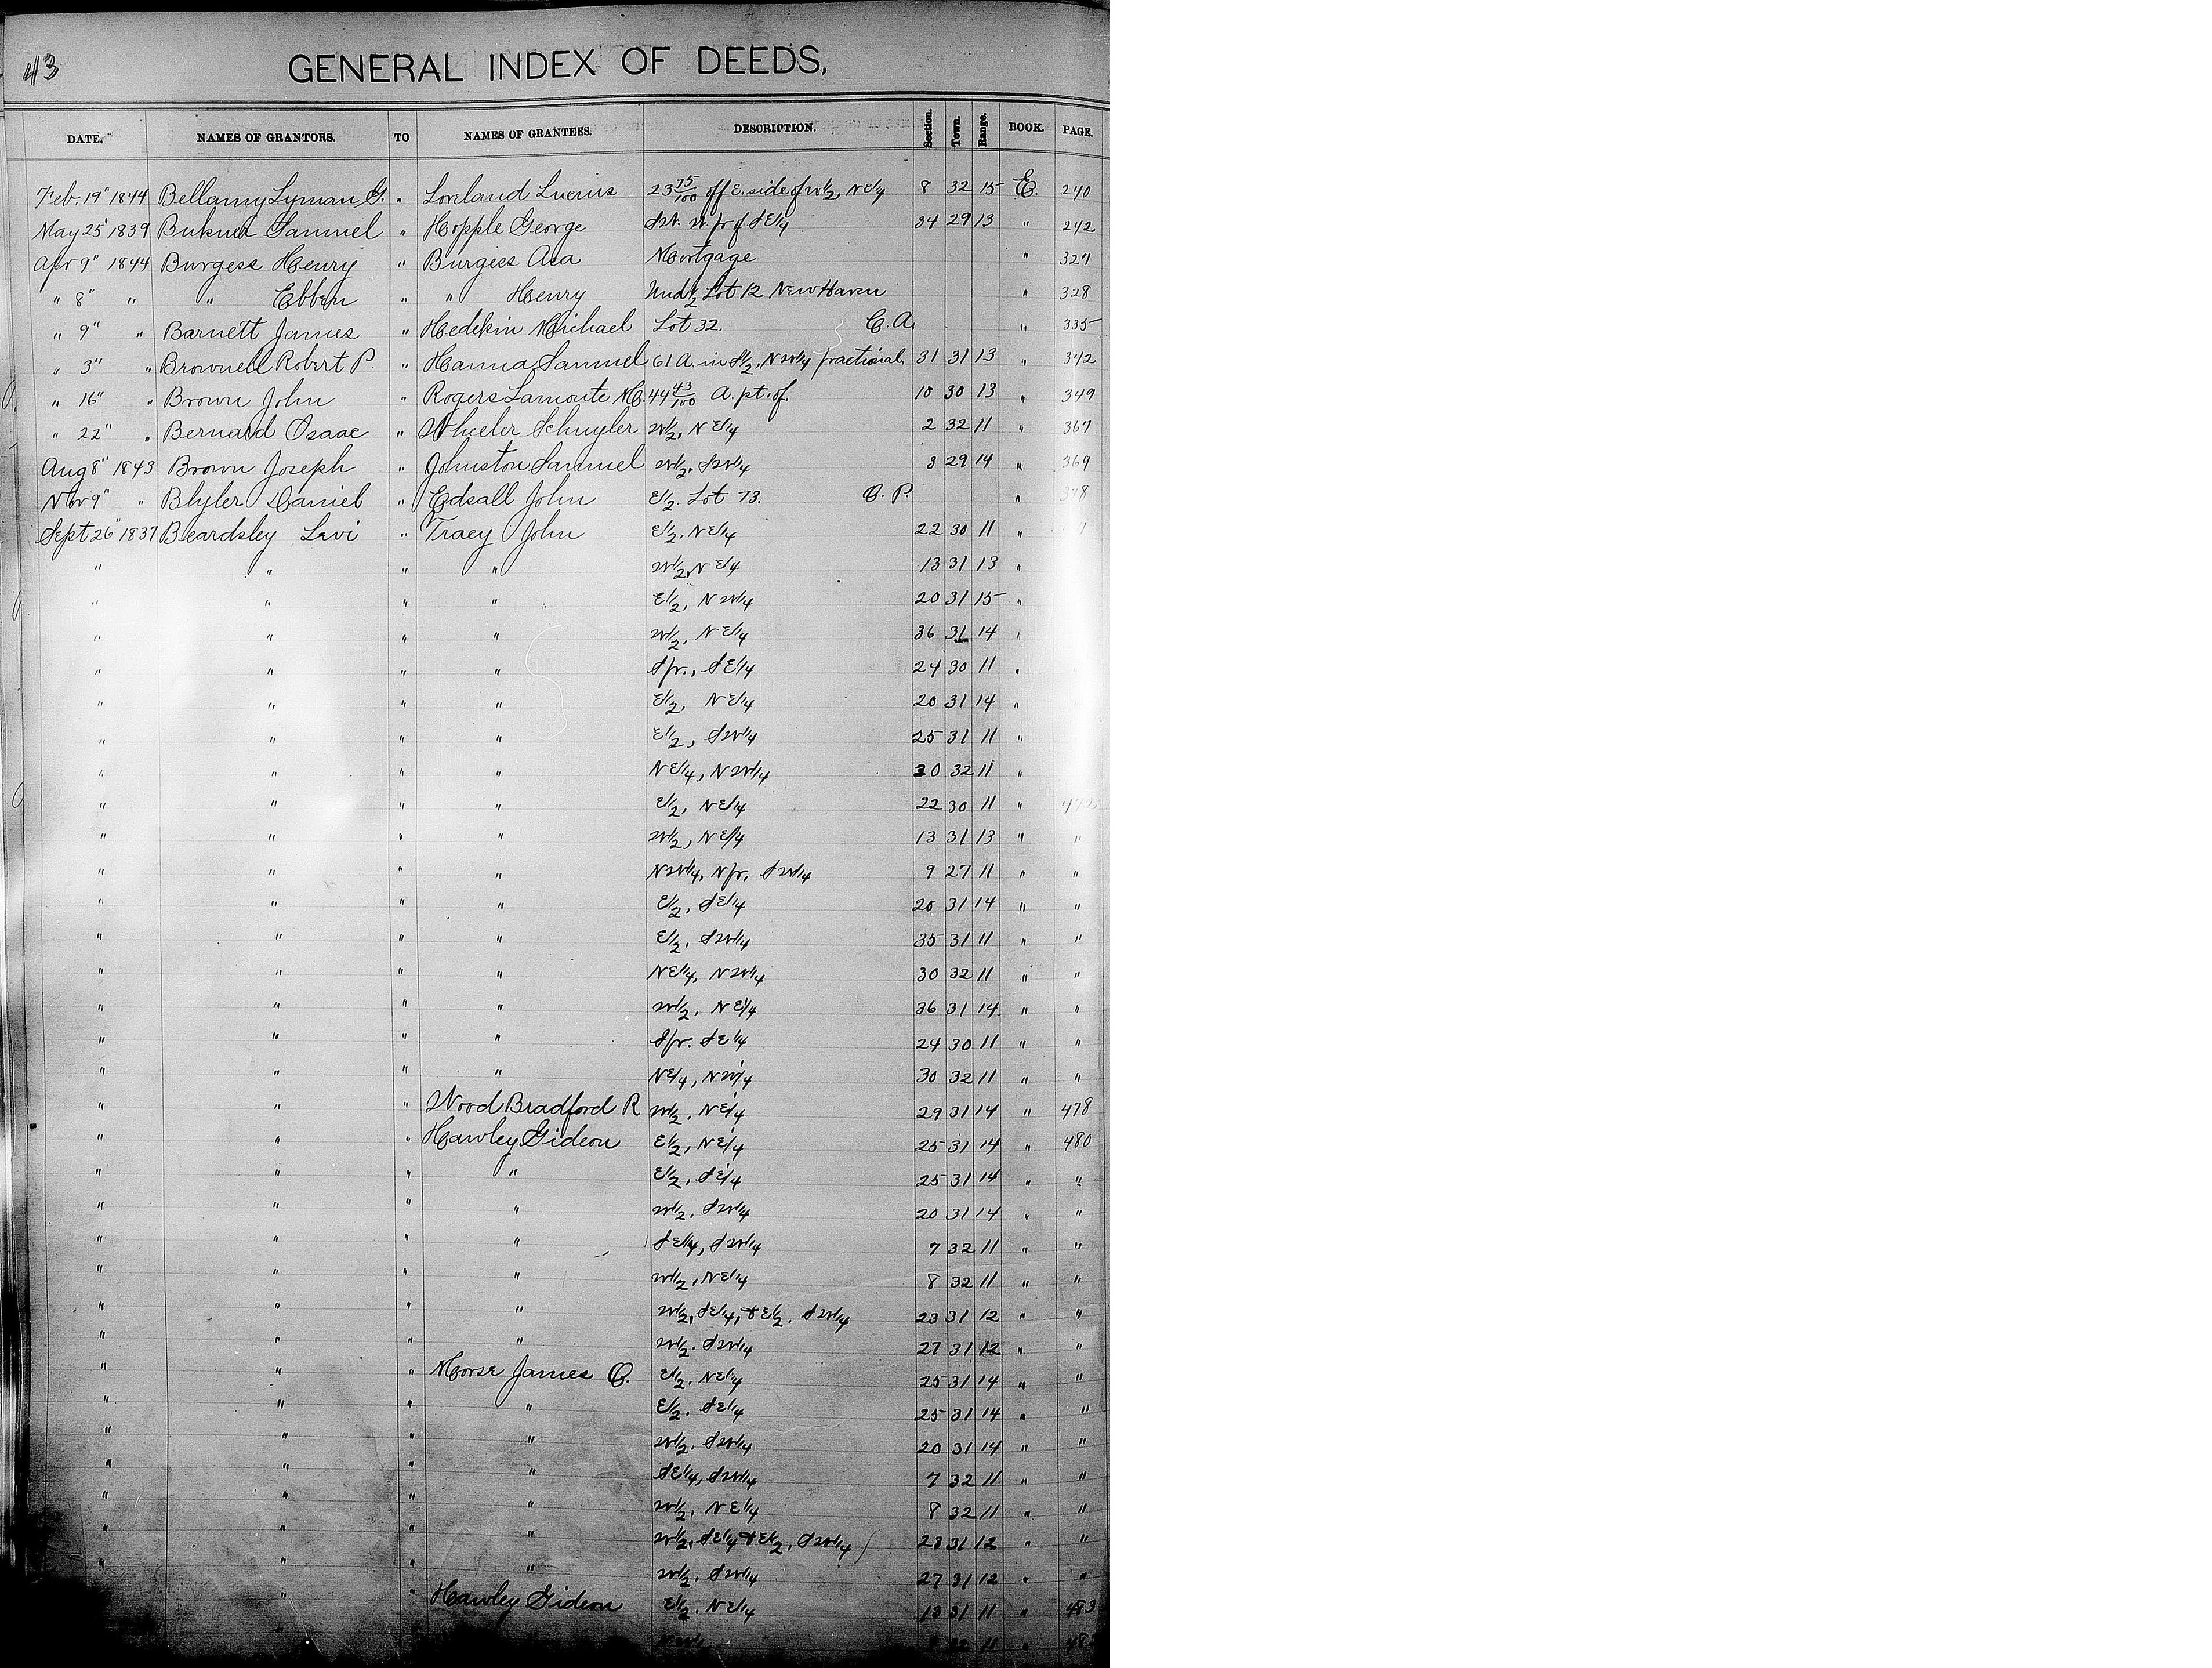 43
GENERAL INDEX OF DEEDS,
DATE. NAMES OF GRANTORS. TO NAMES OF GRANTEES. DESCRIPTION. Section. Town. Range. BOOK. PAGE.
Feb. 19" 1844 Bellamy Lyman G. " Loveland Lucius 23 75/100 off E. side of W1/2, NE1/4 8 32 15 E. 240
May 25" 1839 Samuel " Hopple George fr of SE1/4 34 29 13 " 242
Apr 9" 1844 Burgess Henry " Burgess Asa Mortgage " 327
" 8" " " Ebben " " Henry Und 1/2 Lot 12 New Haven " 328
" 9" " Barnett James " Hedekin Michael Lot 32. C. A. " 335
" 3" " Brownell Robert P. " Hanna Samuel 61 A. in S1/2, NW1/4 fractional. 31 31 13 " 342
" 16" " Brown John " Rogers Lamoute M. 44 43/100 A. pt. of. 10 30 13 " 349
" 22" " Bernard Isaac " Wheeler Schuyler W1/2, NE1/4 2 32 11 " 367
Aug 8" 1843 Brown Joseph " Johnston Samuel W1/2. SW1/4 3 29 14 " 369
Nov 9" " Blyler Daniel " Edsall John E1/2. Lot 73. O. P. " 378
Sept 26" 1837 Beardsley Levi " Tracy John E1/2. NE1/4 22 30 11 "
" " " " W1/2, NE1/4 13 31 13 "
" " " " E1/2, NW1/4 20 31 15 "
" " " " W1/2, NE1/4 36 31 14 "
" " " " S fr., SE1/4 24 30 11 "
" " " " E1/2, NE1/4 20 31 14 "
" " " " E1/2, SW1/4 25 31 11 "
" " " " NE1/4, NW1/4 30 32 11 "
" " " " E1/2, NE1/4 22 30 11 "
" " " " W1/2, NE1/4 13 31 13 " "
" " " " NW1/4, N fr, SW1/4 9 27 11 " "
" " " " E1/2, SE1/4 20 31 14 " "
" " " " E1/2. SW1/4 35 31 11 " "
" " " " NE1/4, NW1/4 30 32 11 " "
" " " " W1/2, NE1/4 36 31 14 " "
" " " " S fr. SE1/4 24 30 11 " "
" " " " NE1/4, NW1/4 30 32 11 " "
" " " Wood Bradford R W1/2. NE1/4 29 31 14 " 478
" " " Hawley Gideon E1/2, NE1/4 25 31 14 " 480
" " " " E1/2, SE1/4 25 31 14 " "
" " " " W1/2. SW1/4 20 31 14 " "
" " " " SE1/4, SW1/4 7 32 11 " "
" " " " W1/2, NE1/4 8 32 11 " "
" " " " W1/2, SE1/4, & E1/2. SW1/4 23 31 12 " "
" " " " W1/2. SW1/4 27 31 12 " "
" " " Morse James O. E1/2. NE1/4 25 31 14 " "
" " " " E1/2. SE1/4 25 31 14 " "
" " " " W1/2. SW1/4 20 31 14 " "
" " " " SE1/4, SW1/4 7 32 11 " "
" " " " W1/2, NE1/4 8 32 11 " "
" " " " W1/2, SE1/4 & E1/2, SW1/4 23 31 12 " "
" " " " W1/2. SW1/4 27 31 12 " "
" " Hawley Gideon E1/2. NE1/4 13 31 11 " 483
11 "